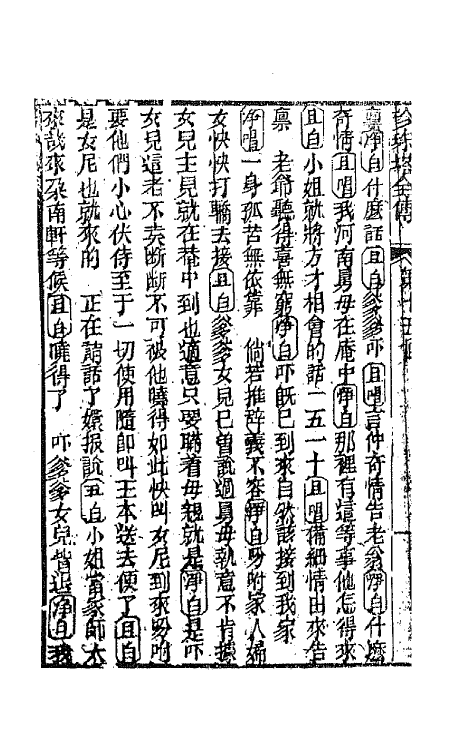 珍珠塔全傳 第十五回
禀淨白什麽話且白爹爹吓且唱言仲奇情告老翁淨白什麽
奇情且唱我河南舅母在庵中淨白那裡有這等事他怎得來
且白小姐就將方才相會的話一五一十且唱備細情由來告
禀 老爺聽得喜無窮淨白吓旣已到來自然該接到我家
淨唱一身孤苦無依靠 倘若推辞義不容淨白分咐家人婦
女快快打轎去接且白爹爹女兒已曽說過舅母執意不肯據
女兒主見就在菴中到也適意只要瞞着母親就是淨白是吓
女兒這老不贤断断不可被他曉得如此快叫女尼到來分咐
要他們小心伏侍至于一切使用隨卽叫王本送去便了且白
是女尼也就來的 正在講話了嬛报說丑白小姐當家師太
來哉來朶南軒等候且白曉得了 吓爹爹女兒暫退淨白我